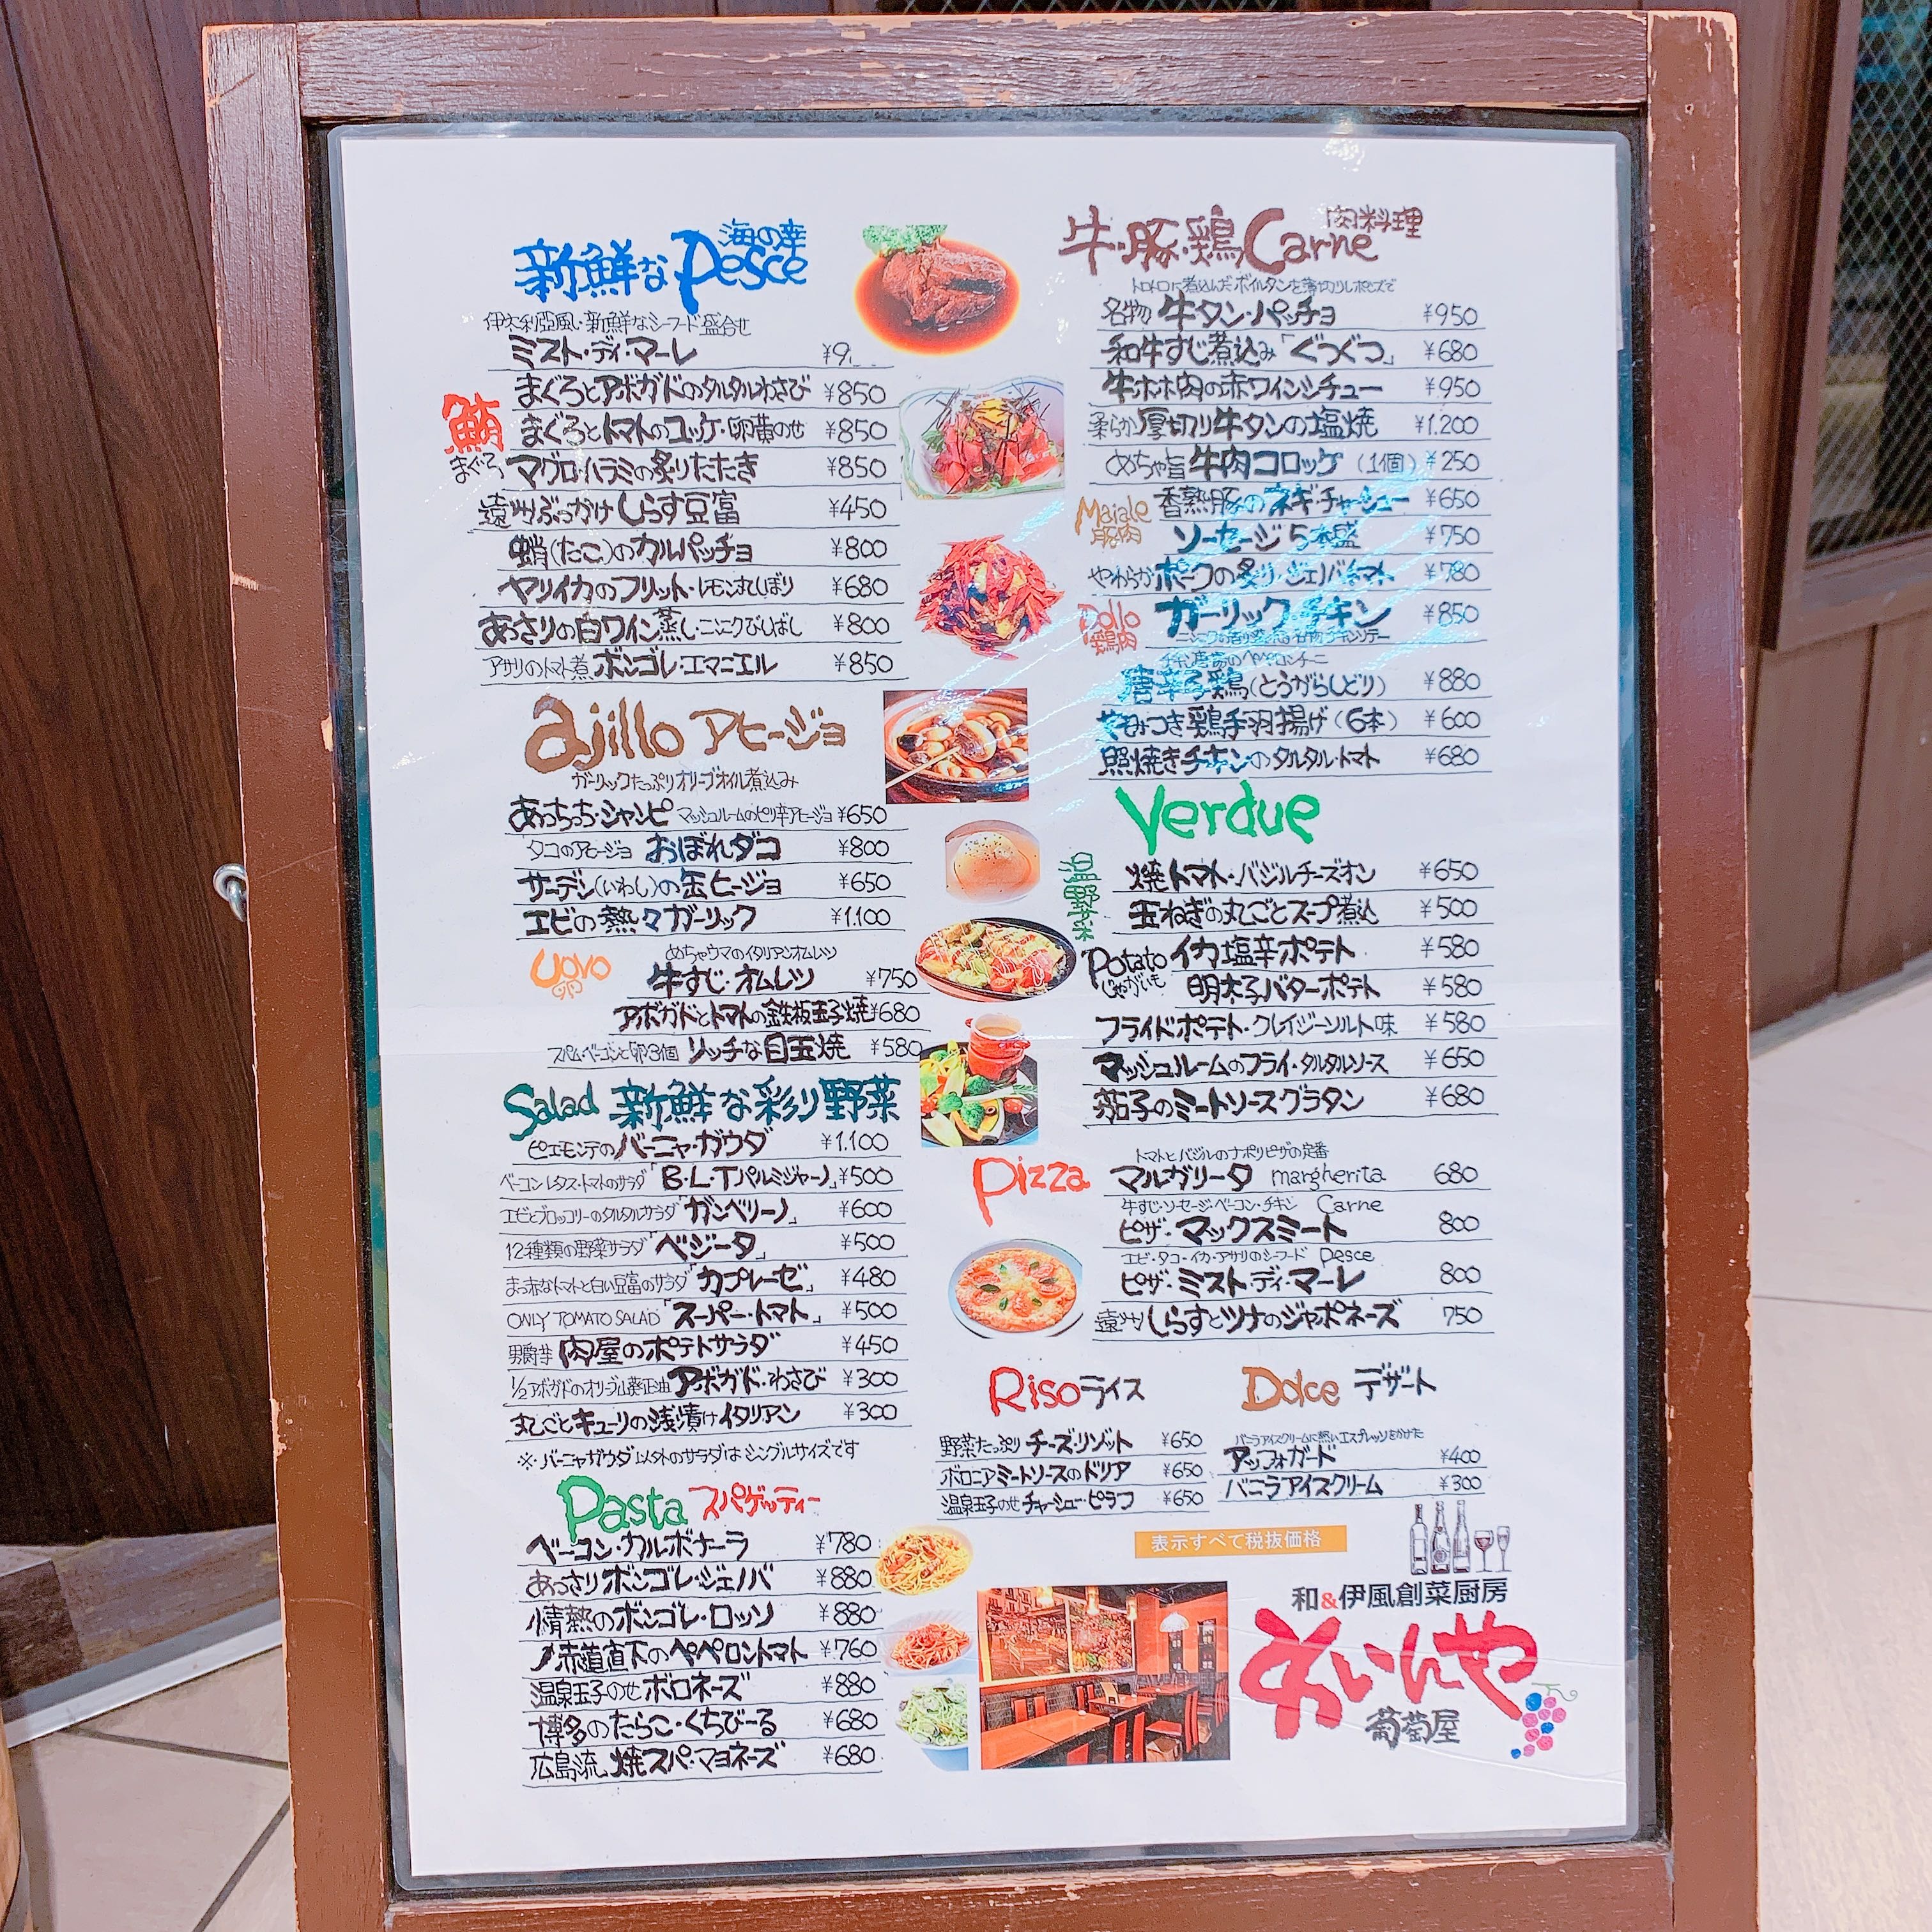 新鮮な Pesce 海の幸
伊太利亞風・新鮮なシーフード盛合せ
ミスト・ディ・マーレ ¥9
鮪 まぐろ
まぐろとアボガドのタルタルわさび ¥850
まぐろとトマトのユッケ・卵黄のせ ¥850
マグロ・ハラミの炙りたたき ¥850
遠州ぶっかけしらす豆富 ¥450
蛸(たこ)のカルパッチョ ¥800
ヤリイカのフリット・レモン丸しぼり ¥680
あさりの白ワイン蒸し・ニンニクびしばし ¥800
アサリのトマト煮 ボンゴレ・エマニエル ¥850
ajillo アヒージョ
ガーリックたっぷりオリーブオイル煮込み
あっちっち・シャンピ マッシュルームのピリ辛アヒージョ ¥650
タコのアヒージョ おぼれダコ ¥800
サーデン(いわし)の缶ヒージョ ¥650
エビの熱々ガーリック ¥1.100
UOVO 卵
めちゃウマのイタリアンオムレツ
牛すじ・オムレツ ¥750
アボガドとトマトの鉄板玉子焼 ¥680
スパム・ベーコンと卵3個 リッチな目玉焼 ¥580
Salad 新鮮な彩り野菜
ピエモンテのバーニャ・ガウダ ¥1.100
ベーコンレタス・トマトのサラダ「B・L・Tパルミジャーノ」 ¥500
エビとブロッコリーのタルタルサラダ「ガンベリーノ」 ¥600
12種類の野菜サラダ「ベジータ」 ¥500
まっ赤なトマトと白い豆富のサラダ「カプレーゼ」 ¥480
ONLY TOMATO SALAD「スーパー・トマト」 ¥500
男爵芋 肉屋のポテトサラダ ¥450
1/2アボガドのオリーブ山葵正油 アボガド・わさび ¥300
丸ごとキューリの浅漬けイタリアン ¥300
※・バーニャガウダ以外のサラダはシングルサイズです
Pasta スパゲッティー
ベーコン・カルボナーラ ¥780
あっさりボンゴレ・ジェノバ ¥880
情熱のボンゴレ・ロッソ ¥880
赤道直下のペペロントマト ¥760
温泉玉子のせボロネーズ ¥880
博多のたらこ・くちびーる ¥680
広島流 焼スパ・マヨネーズ ¥680
牛・豚・鶏 Carne 肉料理
トロトロに煮込んだボイルタンを薄切りしポンズで
名物 牛タン・パッチョ ¥950
和牛すじ煮込み「ぐつぐつ」 ¥680
牛ホホ肉の赤ワインシチュー ¥950
柔らか厚切り牛タンの塩焼 ¥1.200
めちゃ旨 牛肉コロッケ (1個) ¥250
Maiale 豚肉
香熟豚のネギ・チャーシュー ¥650
ソーセージ5本盛 ¥750
やわらかポークの炙り・ジェノバトマト ¥780
Pollo 鶏肉
ガーリックチキン ¥850
唐辛子鶏(とうがらしどり) ¥880
やみつき鶏手羽揚げ(6本) ¥600
照焼きチキンのタルタル・トマト ¥680
Verdue
温野菜
焼トマト・バジルチーズオン ¥650
玉ねぎの丸ごとスープ煮込 ¥500
Potato じゃがいも
イカ塩辛ポテト ¥580
明太子バターポテト ¥580
フライドポテト・クレイジーソルト味 ¥580
マッシュルームのフライ・タルタルソース ¥650
茄子のミートソースグラタン ¥680
Pizza
トマトとバジルのナポリピザの定番
マルガリータ margherita 680
牛すじ・ソーセージ・ベーコン・チキン Carne
ピザ・マックスミート 800
エビ・タコ・イカ・アサリのシーフード Pesce
ピザ・ミスト・ディ・マーレ 800
遠州しらすとツナのジャポネーズ 750
Riso ライス
野菜たっぷりチーズ・リゾット ¥650
ボロニアミートソースのドリア ¥650
温泉玉子のせチャーシュー・ピラフ ¥650
Dolce デザート
バニラアイスクリームに熱いエスプレッソをかけた
アッフォガード ¥400
バニラアイスクリーム ¥300
表示すべて税抜価格
和&伊風創菜厨房
わいんや
葡萄屋